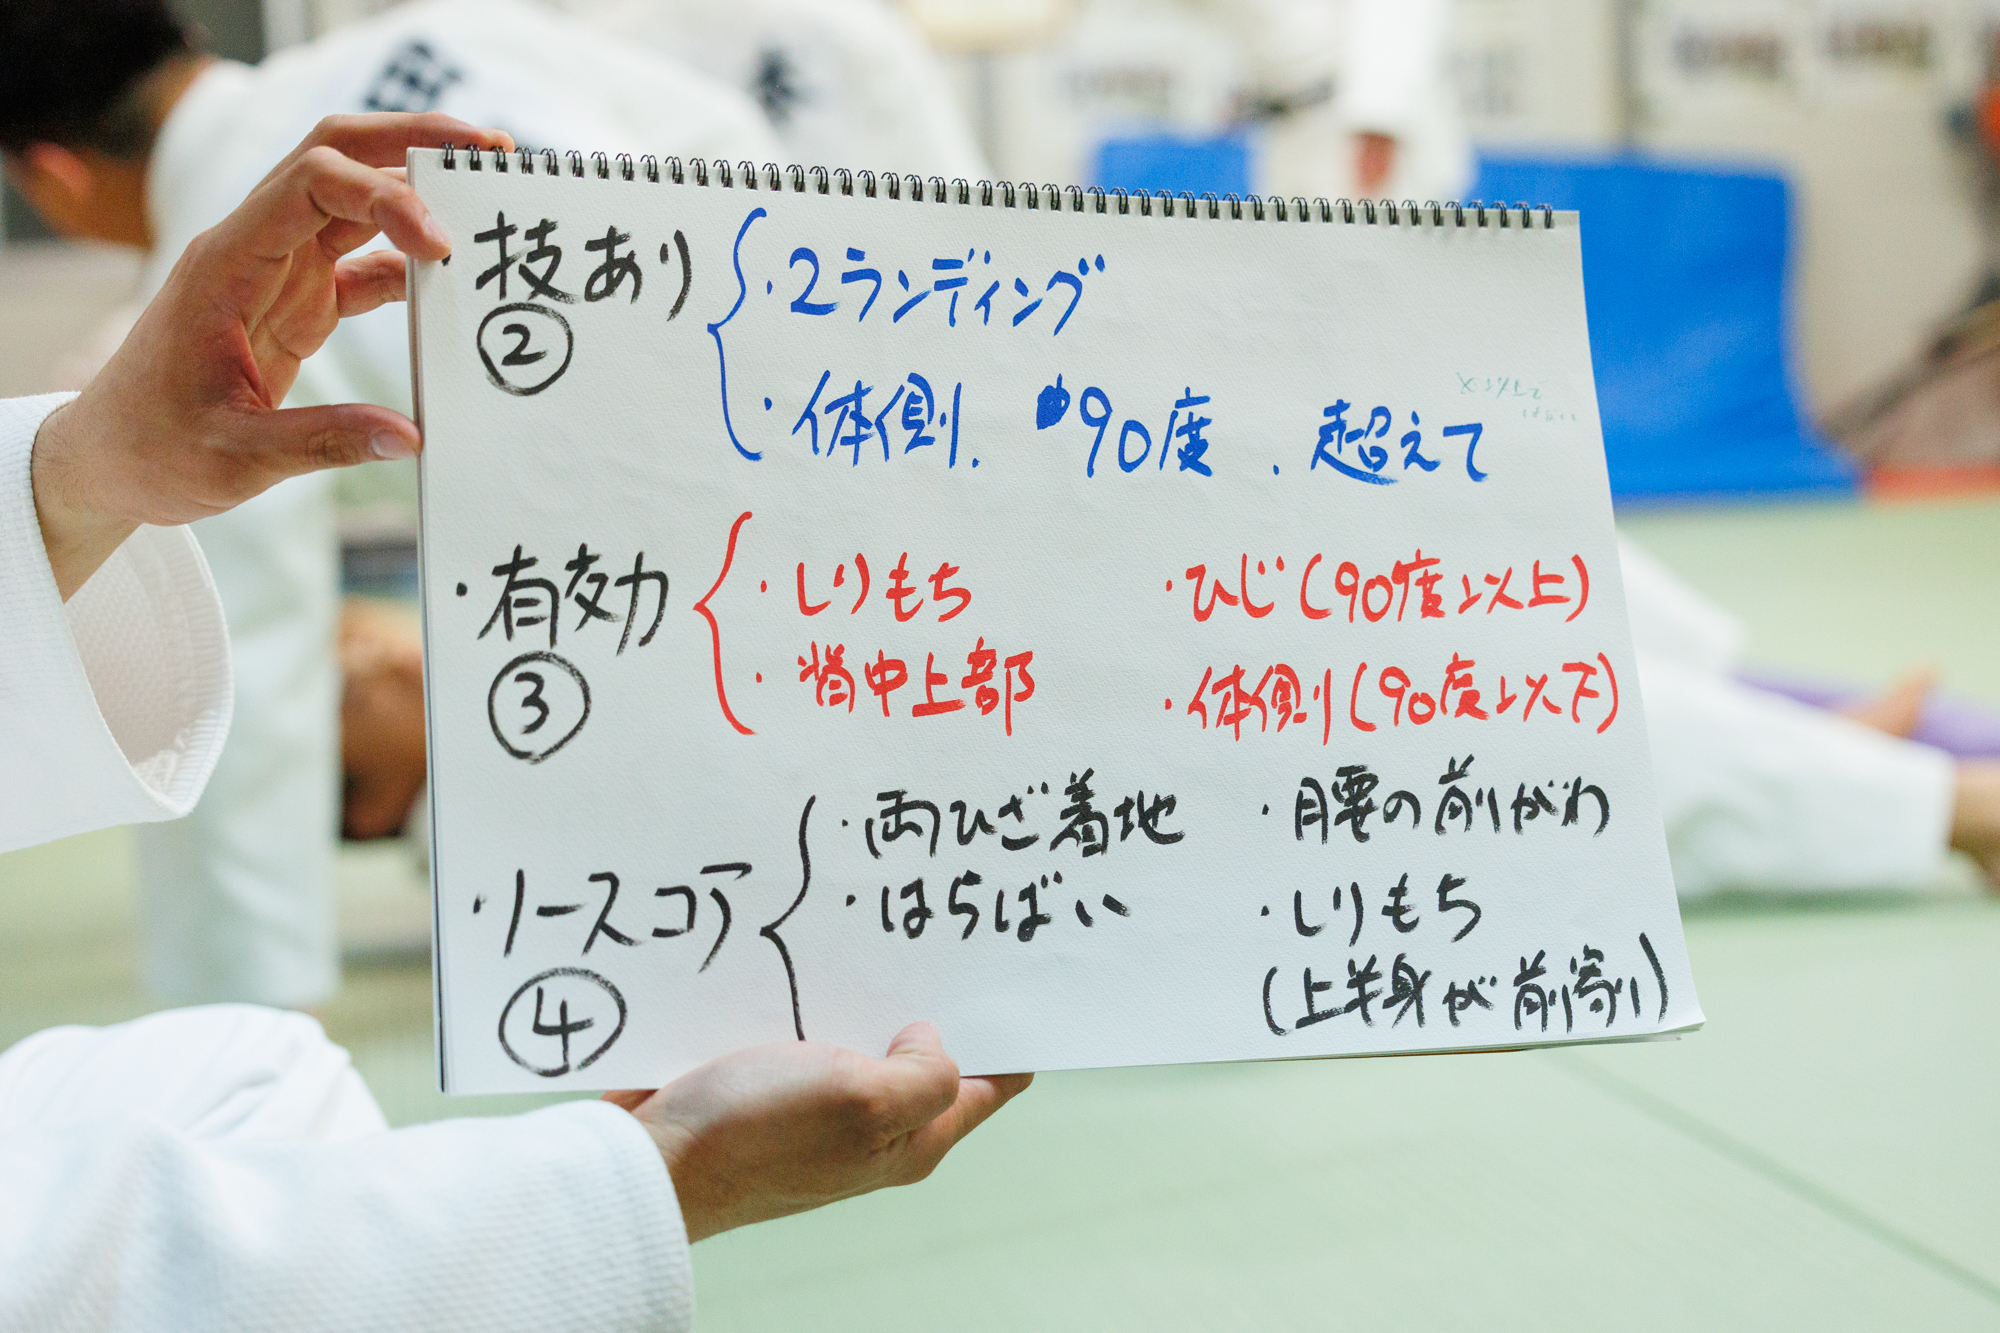 ・技あり
②
・2ランディング
・体側. 90度. 超えて
・有効
③
・しりもち ・ひじ(90度以上)
・背中上部 ・体側(90度以下)
・ノースコア
④
・両ひざ着地 ・腰の前がわ
・はらばい ・しりもち
(上半身が前寄り)